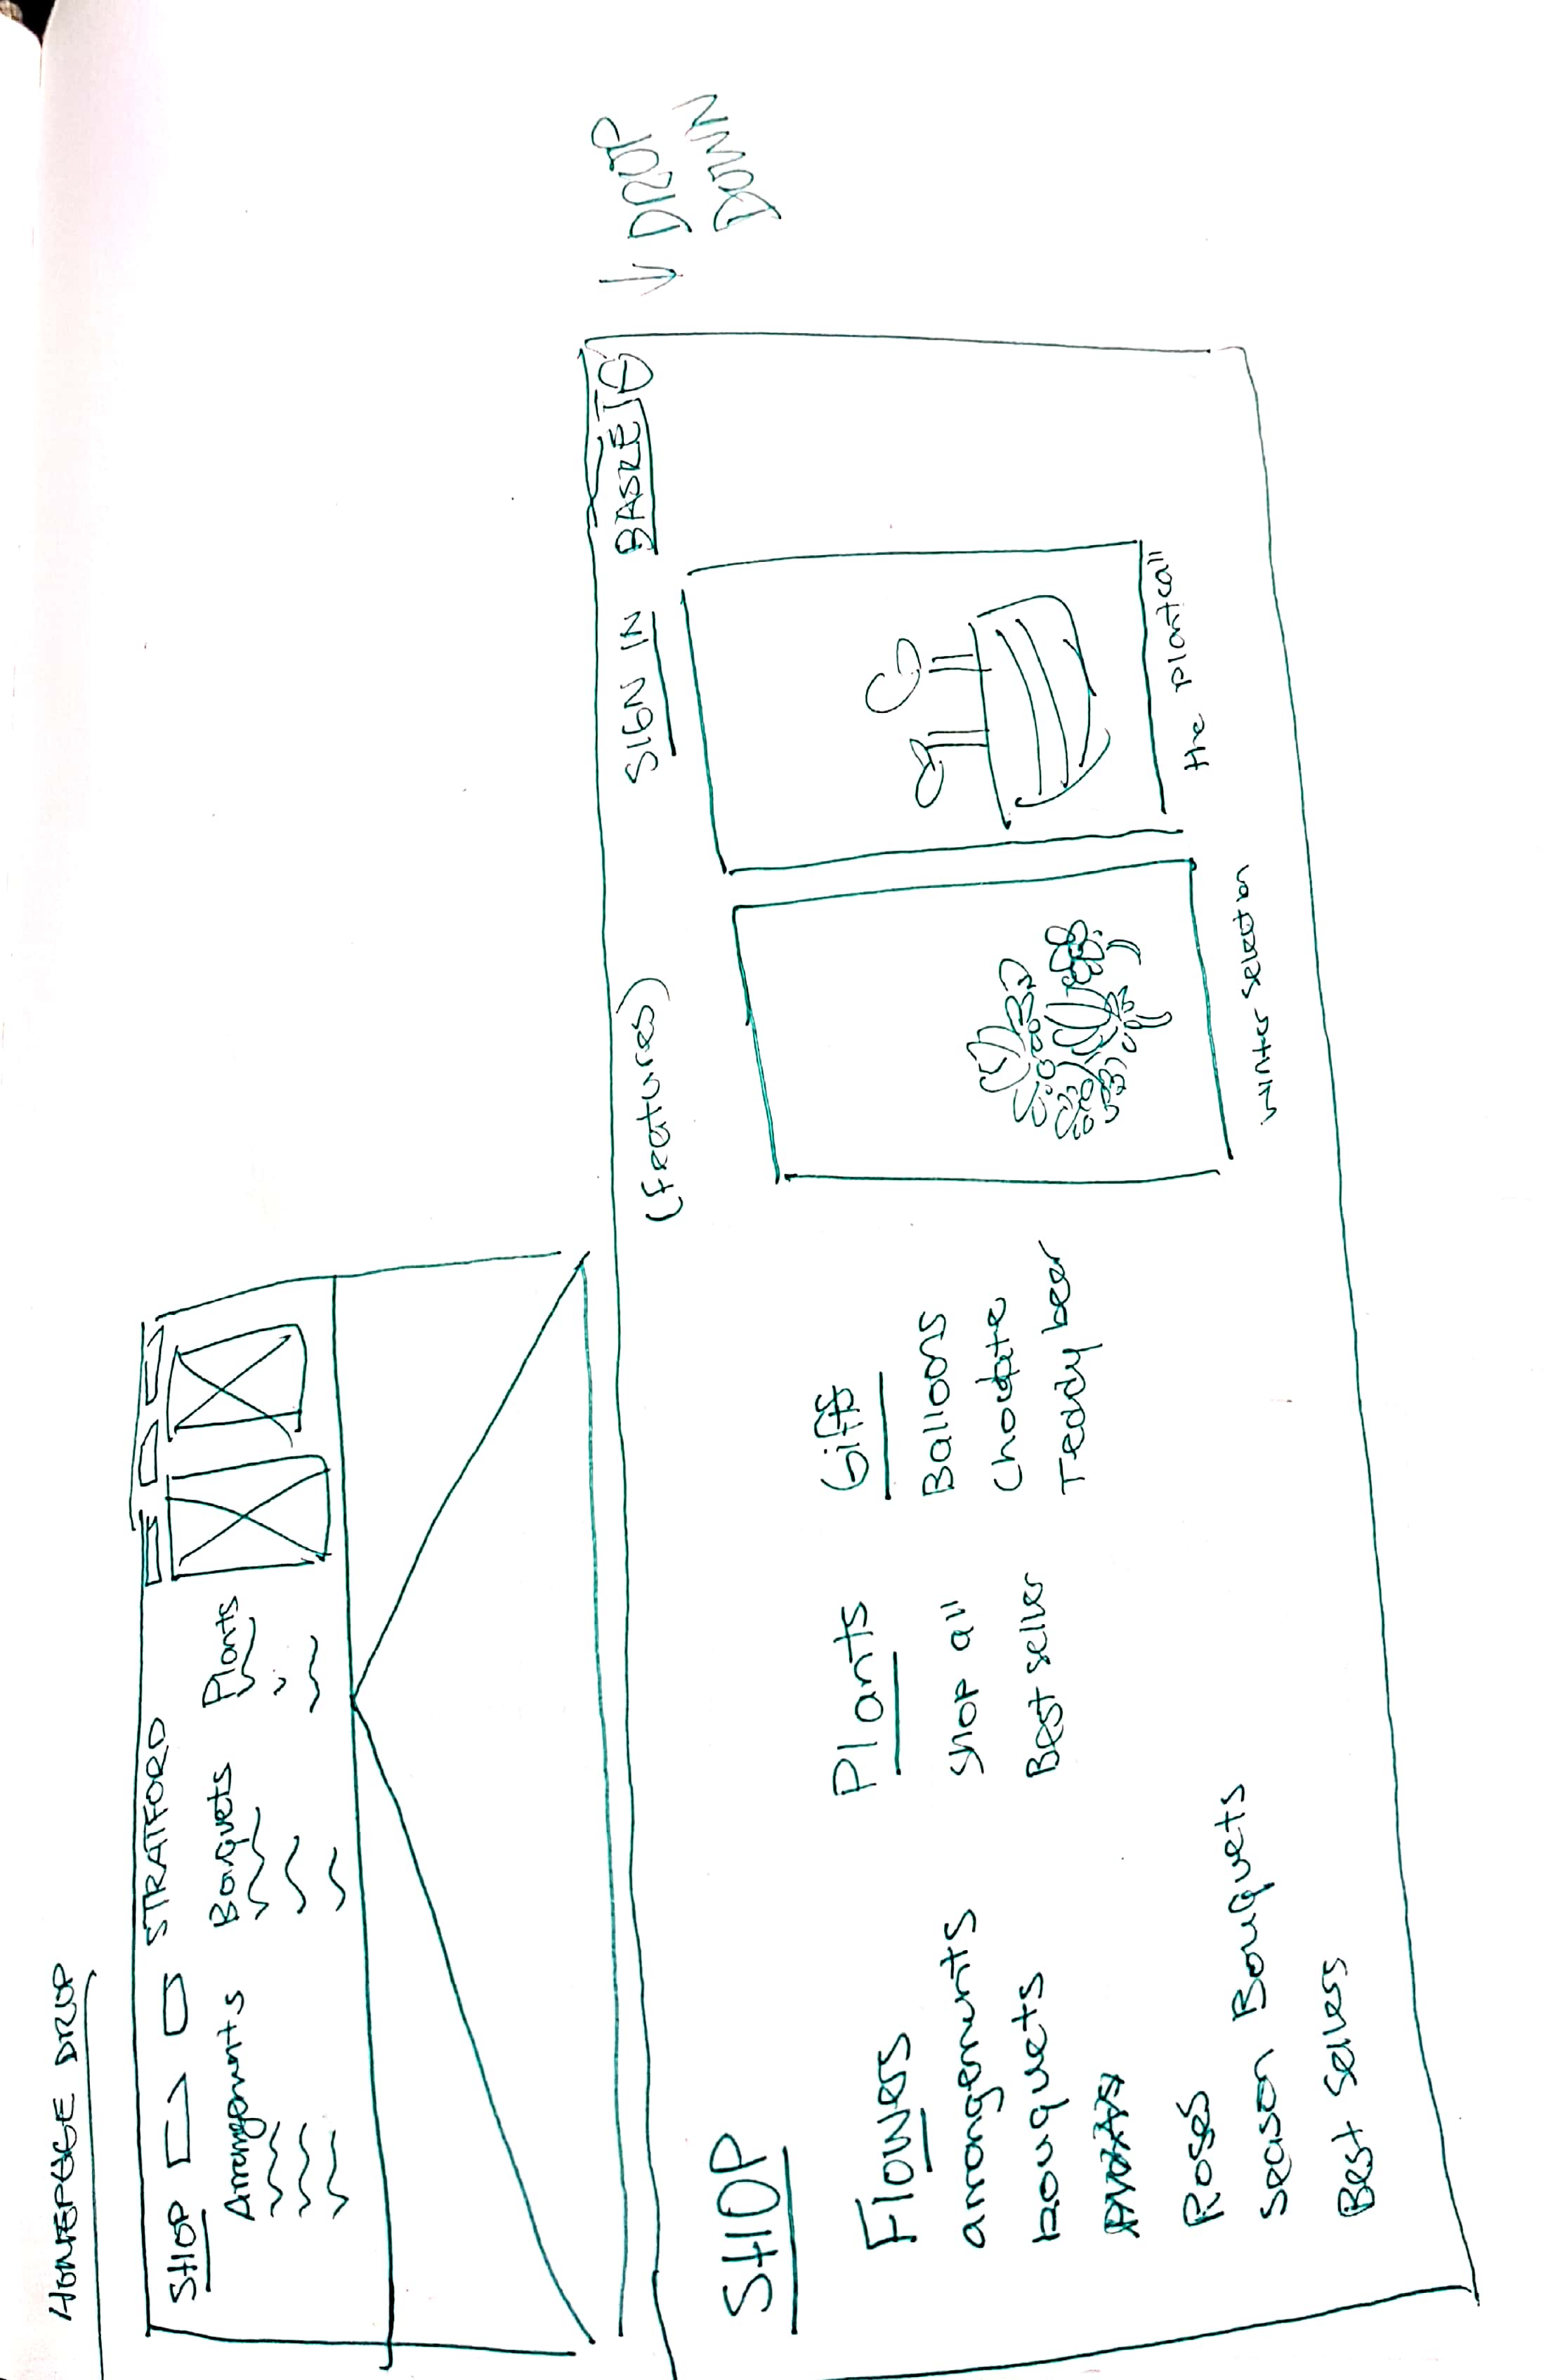 HOMEPAGE DROP
SHOP STRATFORD
Arrangements Bouquets Plants
(Features) SIGN IN BASKET
↓ DROP
DOWN
SHOP
Flowers
arrangements
bouquets
Roses
season Bouquets
Best Sellers
Plants
shop all
Best seller
Gifts
Balloons
Choclate
Teddy beer
winter selection
the plantcall